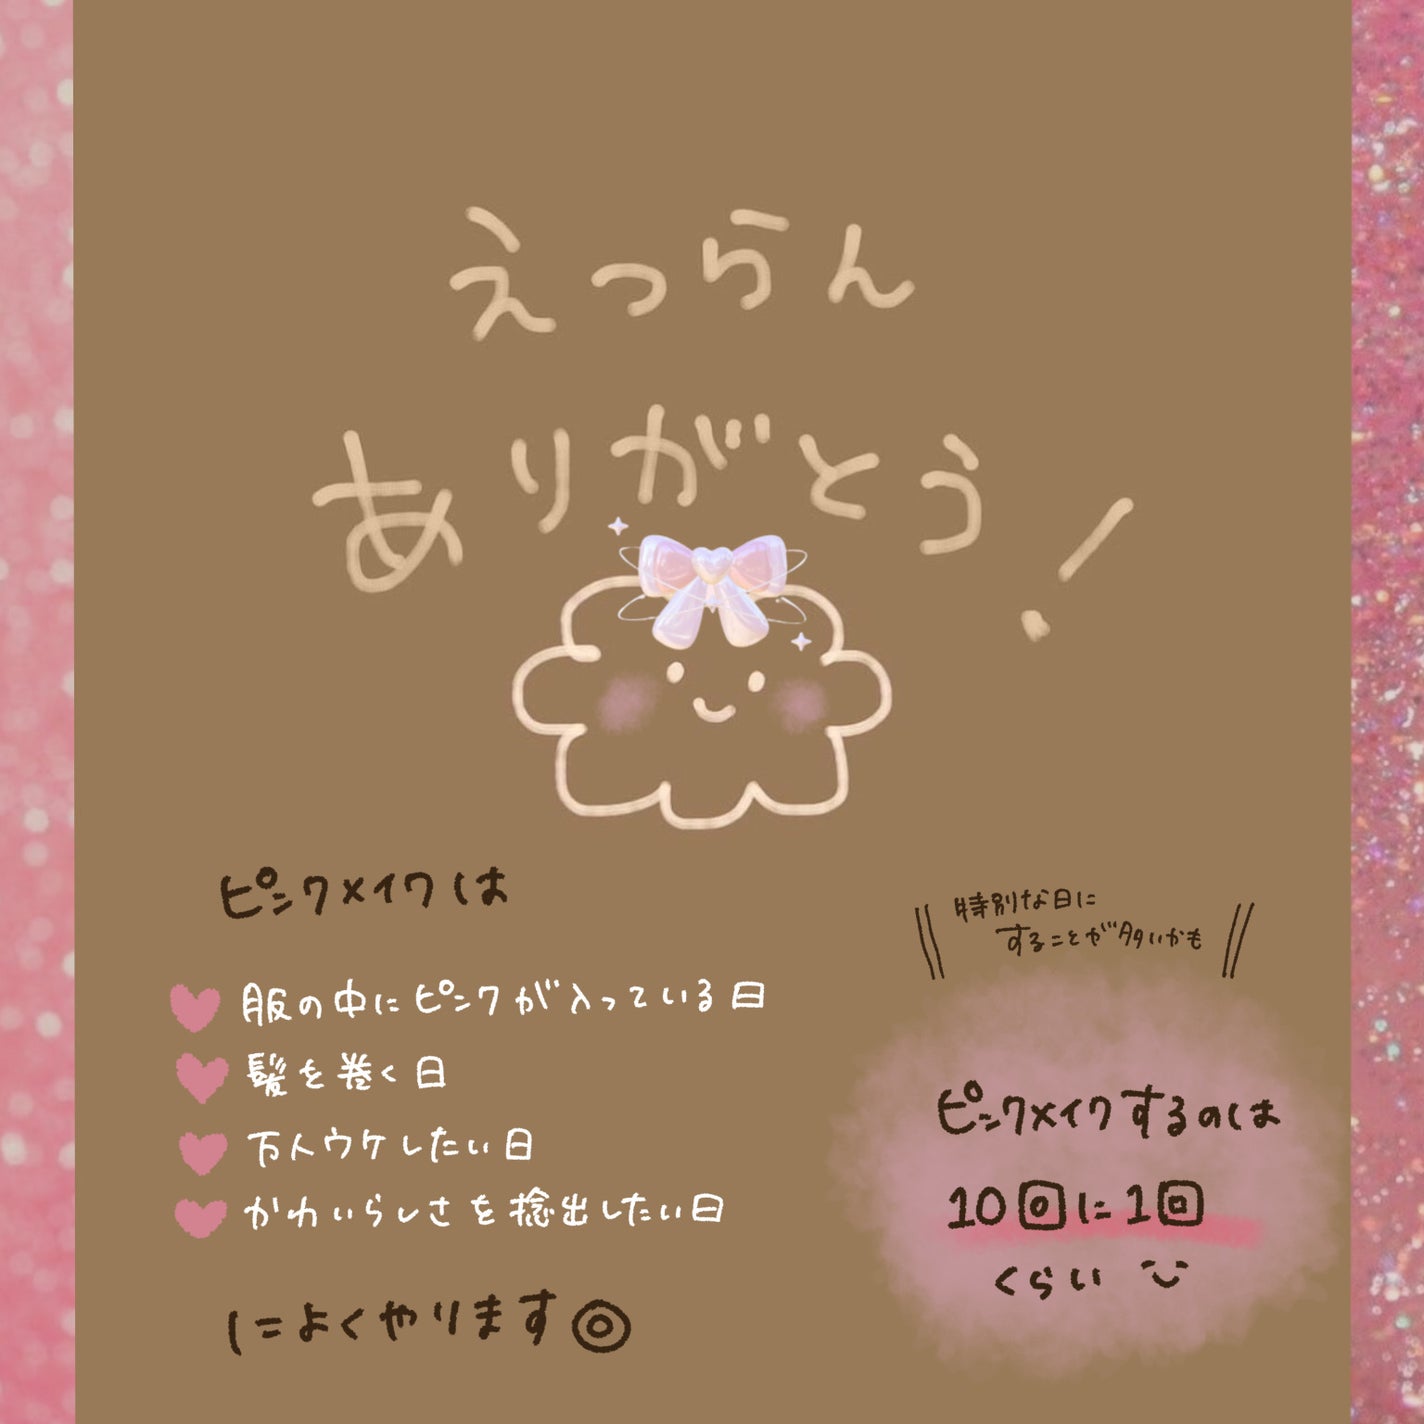 えつらん
ありがとう!
ピンクメイクは
服の中にピンクが入っている日
髪を巻く日
万人ウケしたい日
かわいらしさを捻出したい日
によくやります◎
特別な日に
することが多いかも
ピンクメイクするのは
10回に1回
くらい